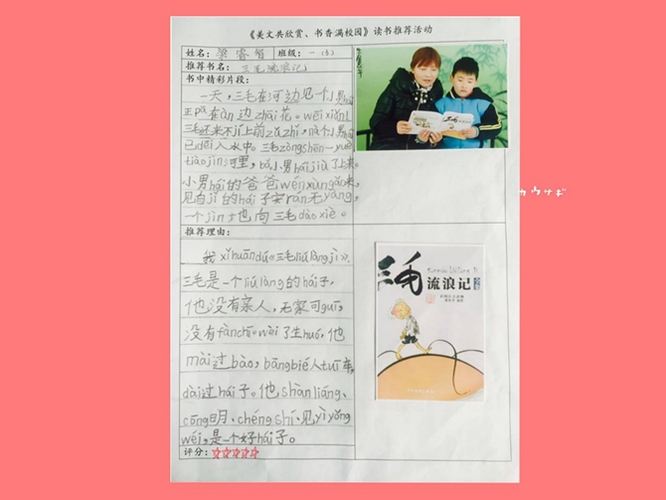 《美文共欣赏、书香满校园》读书推荐活动
姓名：梁睿智 班级：一(3)
推荐书名：三毛流浪记
书中精彩片段：
一天，三毛在河边见一个小男hái
正pā在àn边zhāi花。wēixiǎn！
三毛还来不jí上前zǔzhǐ，nà个小男hái
已diào入水中。三毛zòngshēn一yuè
tiàojìn河里，bǎ小男háijiù了上来。
小男hái的爸爸wénxùngǎn来，
见自jǐ的hái子安rán无yàng，
一个jìn土也向三毛dàoxiè。
推荐理由：
我xǐhuāndú《三毛liúlàngjì》，
三毛是一个liúlàng的hái子。
他没有亲人，无家可guī，
没有fànchī。wèi了生huó，他
mài过bào，bāngbié人tuī车，
dài过hái子。他shànliáng、
cōng明、chéngshí、见yìyǒng
wéi，是一个好hái子。
评分：☆☆☆☆☆
三毛
流浪记
カウサギ